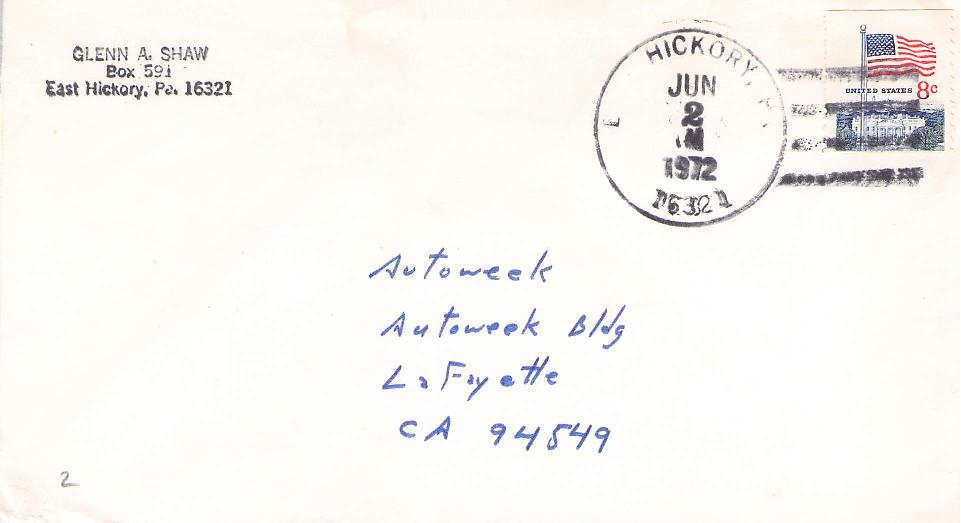 GLENN A. SHAW
Box 591
East Hickory, Pa. 16321
HICKORY,
JUN
2
M
1972
16321
UNITED STATES 8c
Autoweek
Autoweek Bldg
LaFayette
CA 94549
2